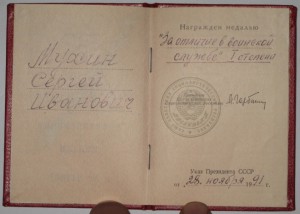 Мухин
Сергей
Иванович
Награжден медалью
"За отличие в воинской
службе" I степени
Указ Президента СССР
от "28" ноября 1991 г.